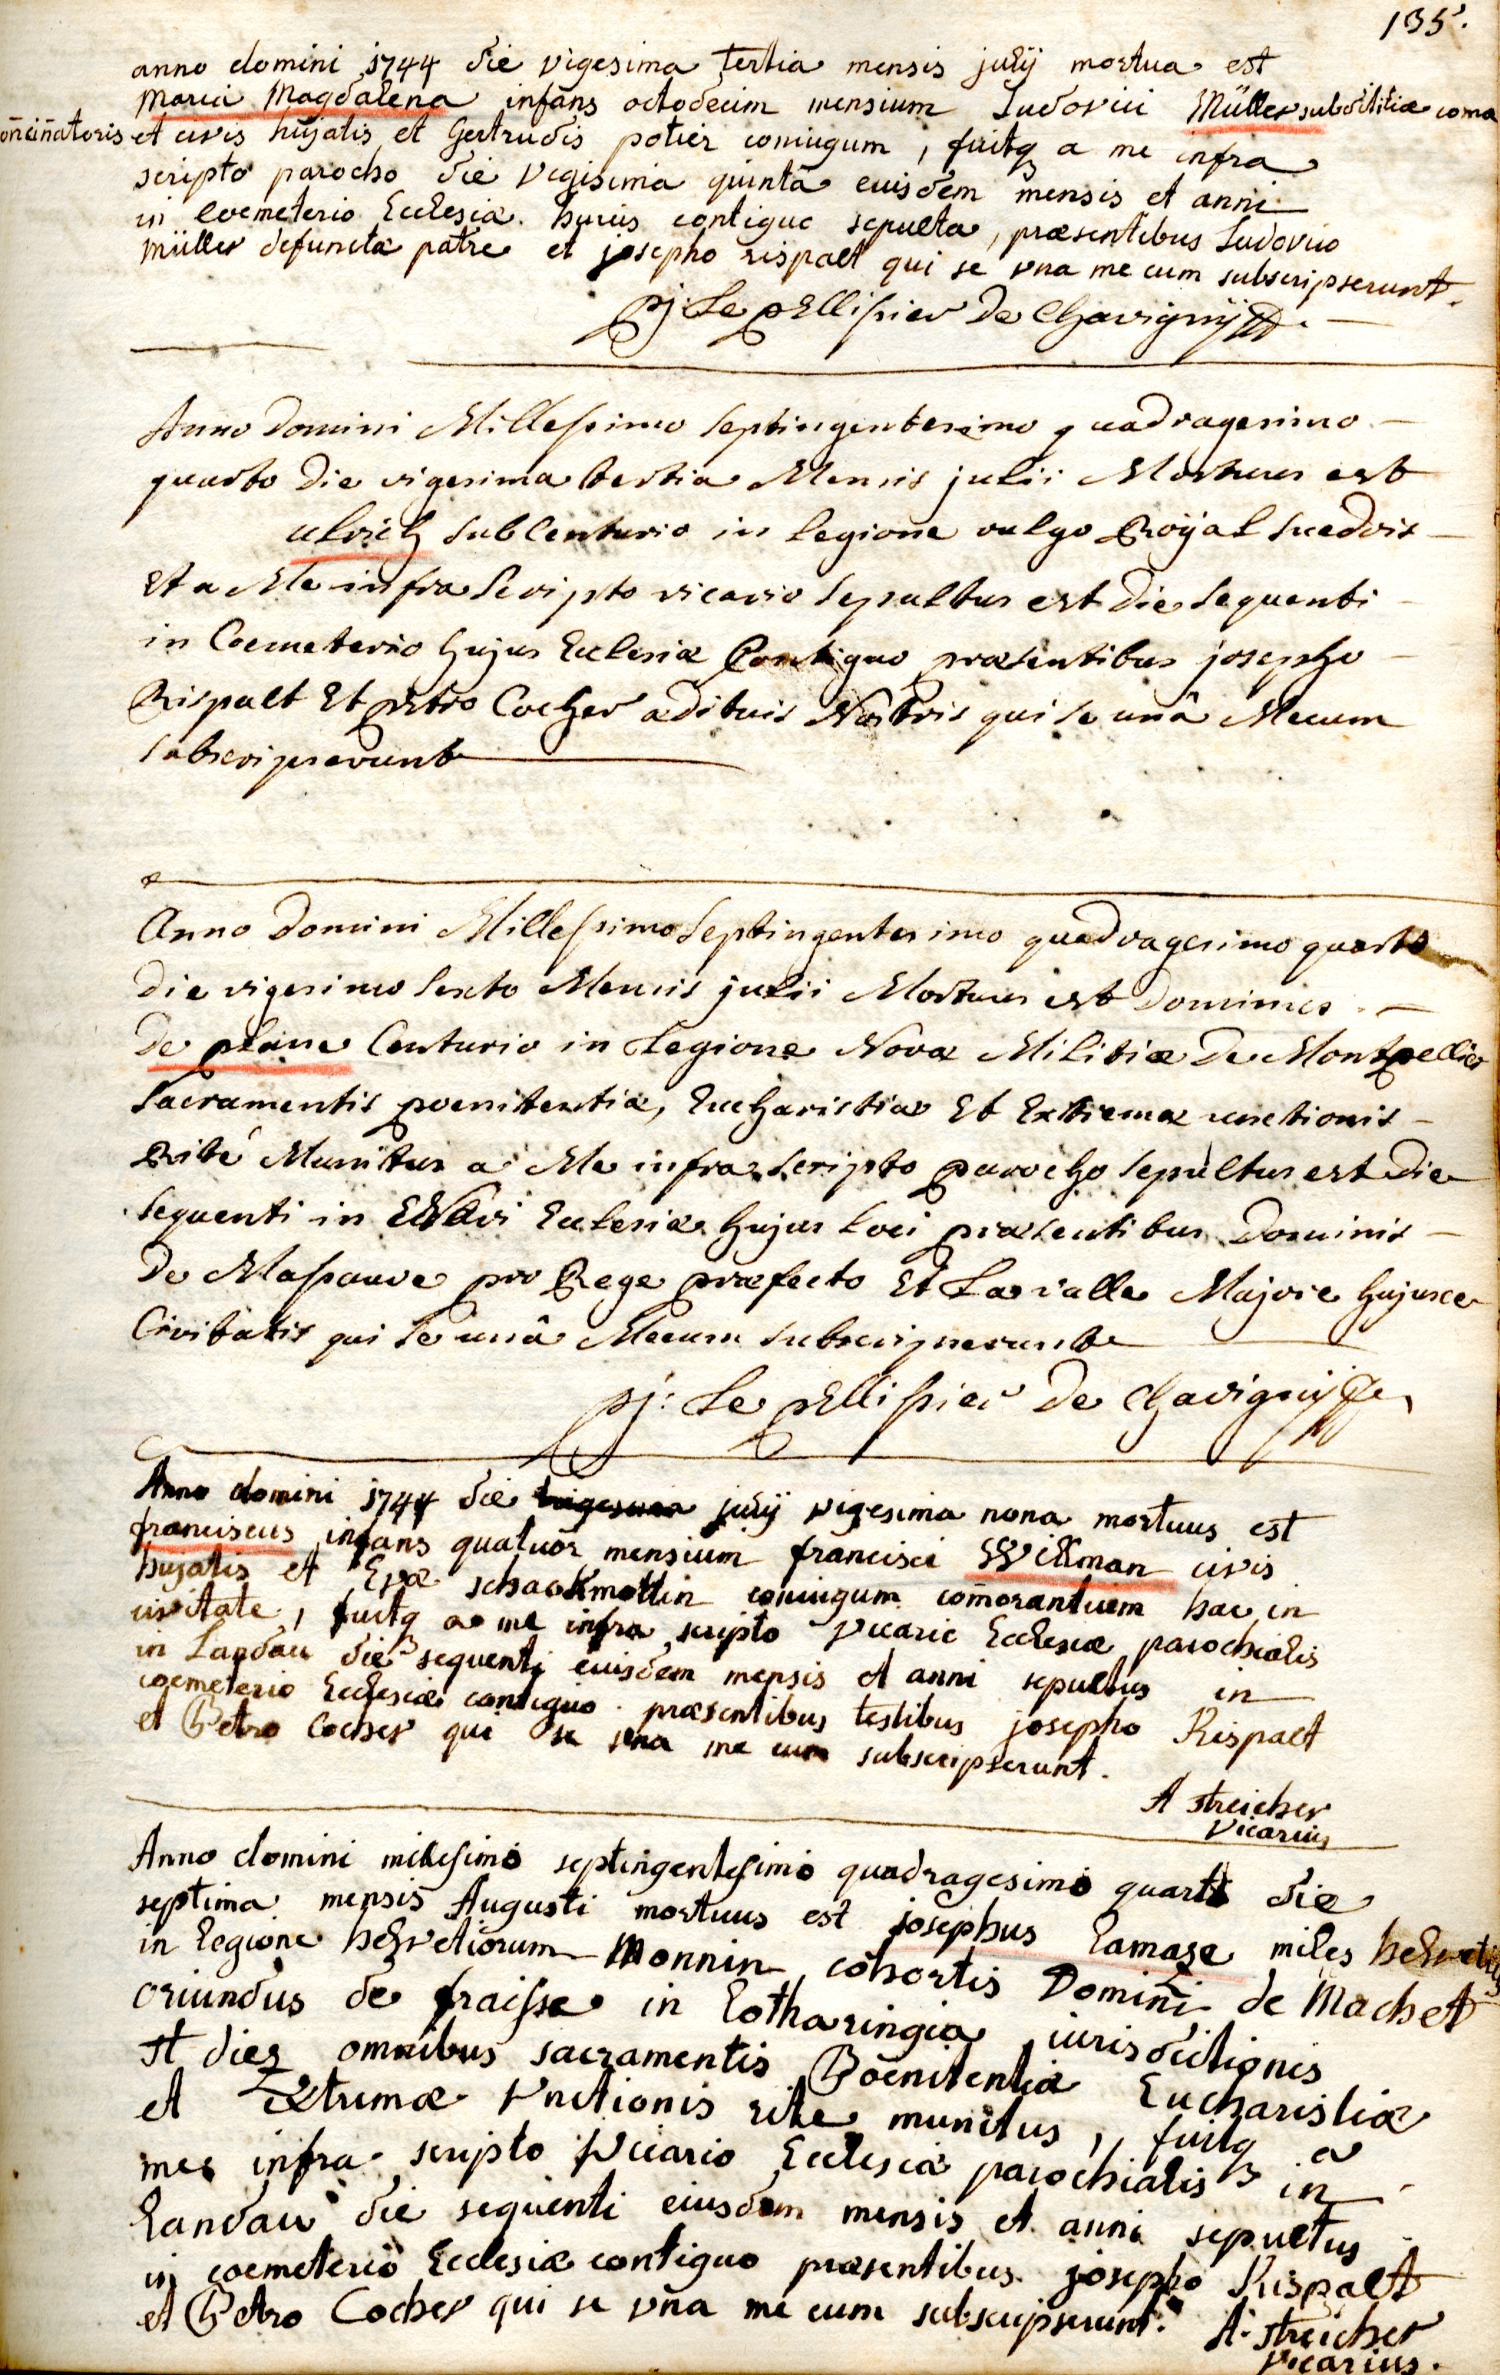 135.
anno domini 1744 die vigesima tertia mensis julij mortua est
Maria Magdalena infans octodecim mensium Ludovici Müller subdititiæ coma
concinnatoris et civis hujatis et Gertrudis potier coniugum, fuitq a me infra
scripto parocho die vigisima quinta eiusdem mensis et anni
in Coemeterio Ecclesiæ huius contiguo sepulta, præsentibus Ludovico
müller defunctæ patre et josepho rispalt qui se vna me cum subscripserunt.
pj: Le pEllissier De Chavignÿ
Anno Domini Millessimo Septingentesimo quadragesimo
quarto Die vigesima tertia Mensis julii Mortuus est
ulrich subCenturio in Legione vulgo Royal Suedois
Et a Me infra Scripto vicario Sepultus est Die Sequenti
in Coemeterio hujus Ecclesiæ Contiguo præsentibus josepho
Rispalt Et petro Cocher ædituis Nostris qui se unâ Mecum
subscripserunt
Anno Domini Millessimo Septingentesimo quadragesimo quarto
Die vigesimo sexto Mensis julii Mortuus est Dominus
De plaine Centurio in Legione Novæ Militiæ De Montpellier
Sacramentis poenitentiæ, Eucharistiæ Et Extremæ unctionis
Rité Munitus a Me infra Scripto parocho Sepultus est Die
Sequenti in Ecclesiæ hujus Loci præsentibus Dominis
De Massauve pro Rege præfecto Et Lavalle Majore hujusce
Civitatis qui Se unâ Mecum subscripserunt
pj: Le pEllissier De Chavignÿ
Anno domini 1744 die julij vigesima nona mortuus est
franciscus infans quatuor mensium francisci Willman civis
hujatis et Evæ schackmottin coniugum comorantium hac in
civitate, fuitq a me infra scripto Vicario Ecclesiæ parochialis
in Landau die sequenti eiusdem mensis et anni sepultus in
coemeterio Ecclesiæ contiguo præsentibus testibus josepho Rispalt
et Petro Cocher qui se vna me cum subscripserunt.
A streicher
Vicarius
Anno domini milesimo septingentesimo quadragesimo quarto die
septima mensis Augusti mortuus est josephus Lamase miles helvetius
in legione helvetiorum Monnin cohortis Domini de Machet
oriundus de fraisse in Lotharingia iurisdictionis
st diez omnibus sacramentis Poenitentiæ Eucharistiæ
et Extremæ Vnctionis rite munitus, fuitq a
me infra scripto Vicario Ecclesiæ parochialis in
Landau die sequenti eiusdem mensis et anni sepultus
in coemeterio Ecclesiæ contiguo præsentibus josepho Rispalt
et Petro Cocher qui se vna me cum subscripserunt.
A. streicher
Vicarius.